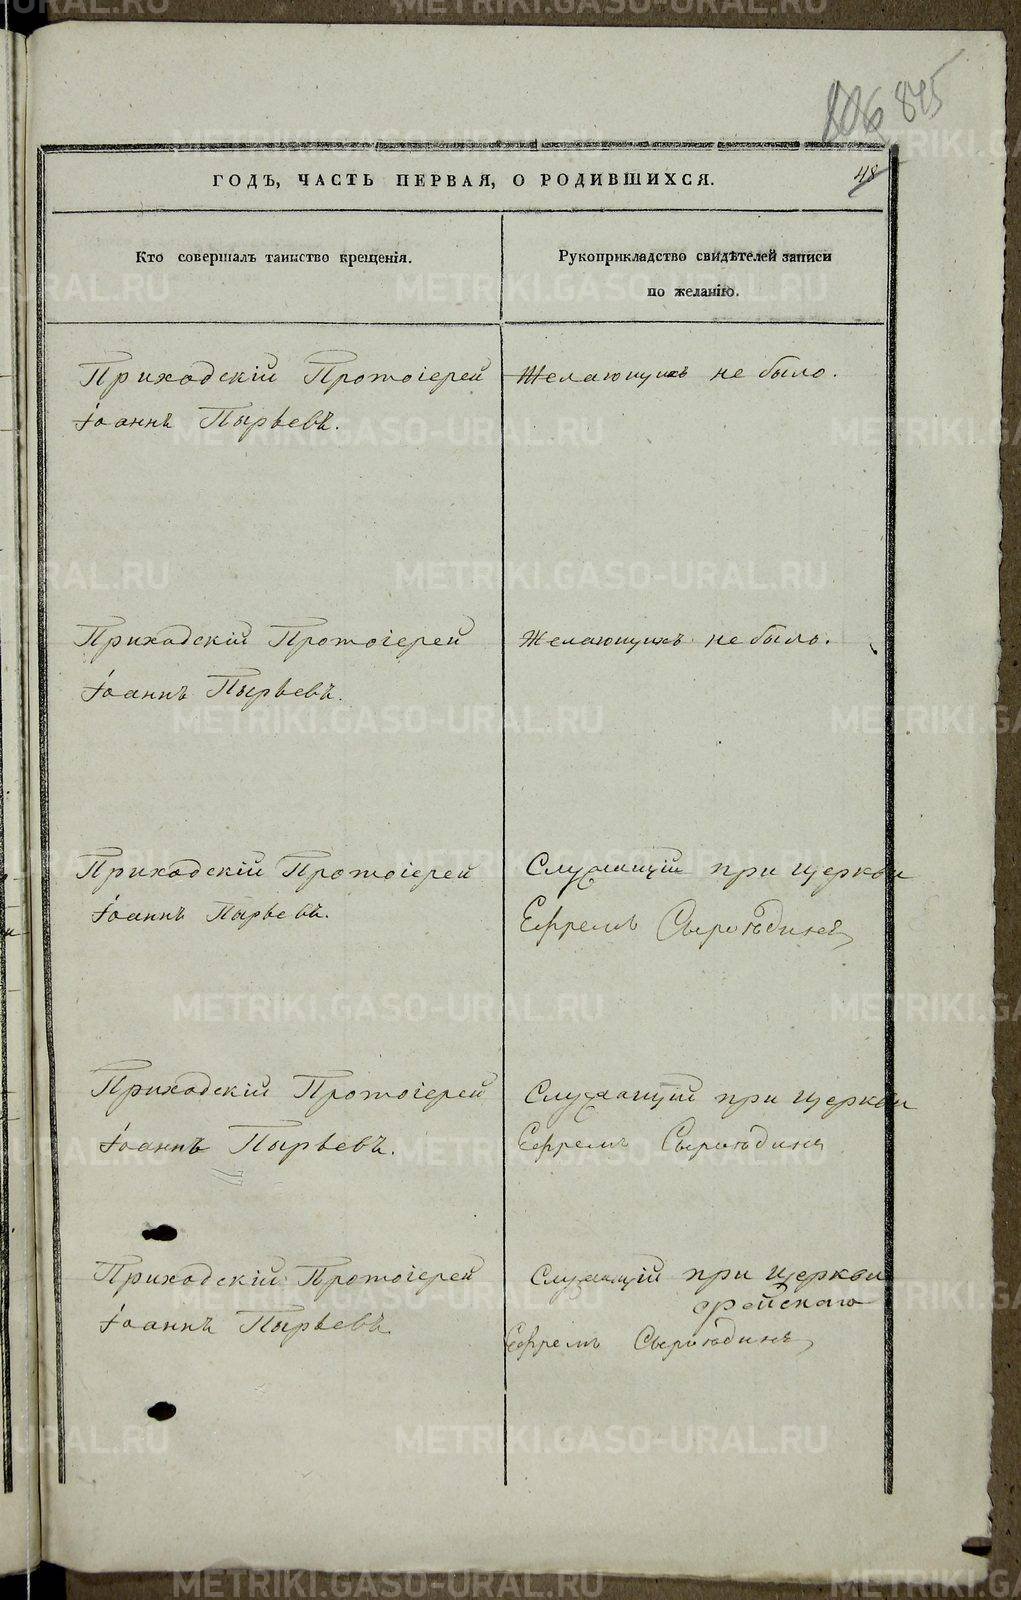 845
48
ГОДЪ, ЧАСТЬ ПЕРВАЯ, О РОДИВШИХСЯ.
Кто совершалъ таинство крещенія.
Рукоприкладство свидѣтелей записи
по желанію.
Приходскій Протоіерей
Іоаннъ Пырьевъ.
Желающихъ не было.
Приходскій Протоіерей
Іоаннъ Пырьевъ.
Желающихъ не было.
Приходскій Протоіерей
Іоаннъ Пырьевъ.
Служащій при церкви
Ефремъ Сыроѣдинъ
Приходскій Протоіерей
Іоаннъ Пырьевъ.
Служащій при церкви
Ефремъ Сыроѣдинъ
Приходскій Протоіерей
Іоаннъ Пырьевъ
Служащій при церкви
Ефремъ Сыроѣдинъ
METRIKI.GASO-URAL.RU